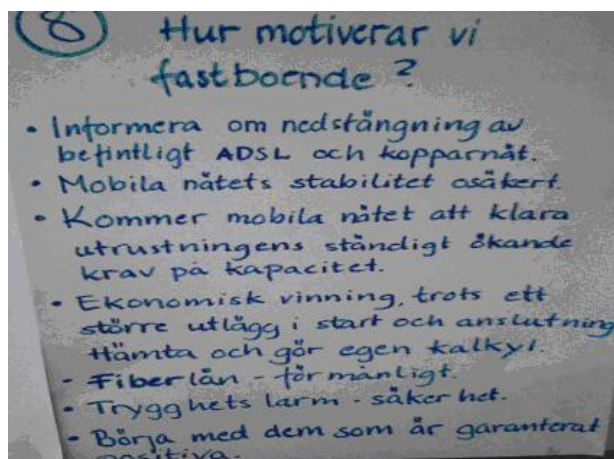 8 Hur motiverar vi
fastboende?
• Informera om nedstängning av
befintligt ADSL och kopparnät.
• Mobila nätets stabilitet osäkert.
• Kommer mobila nätet att klara
utrustningens ständigt ökande
krav på kapacitet.
• Ekonomisk vinning, trots ett
större utlägg i start och anslutning
Hämta och gör egen kalkyl.
- Fiberlån - förmånligt.
• Trygghets larm - säkerhet.
• Börja med dem som är garanterat
positiva.